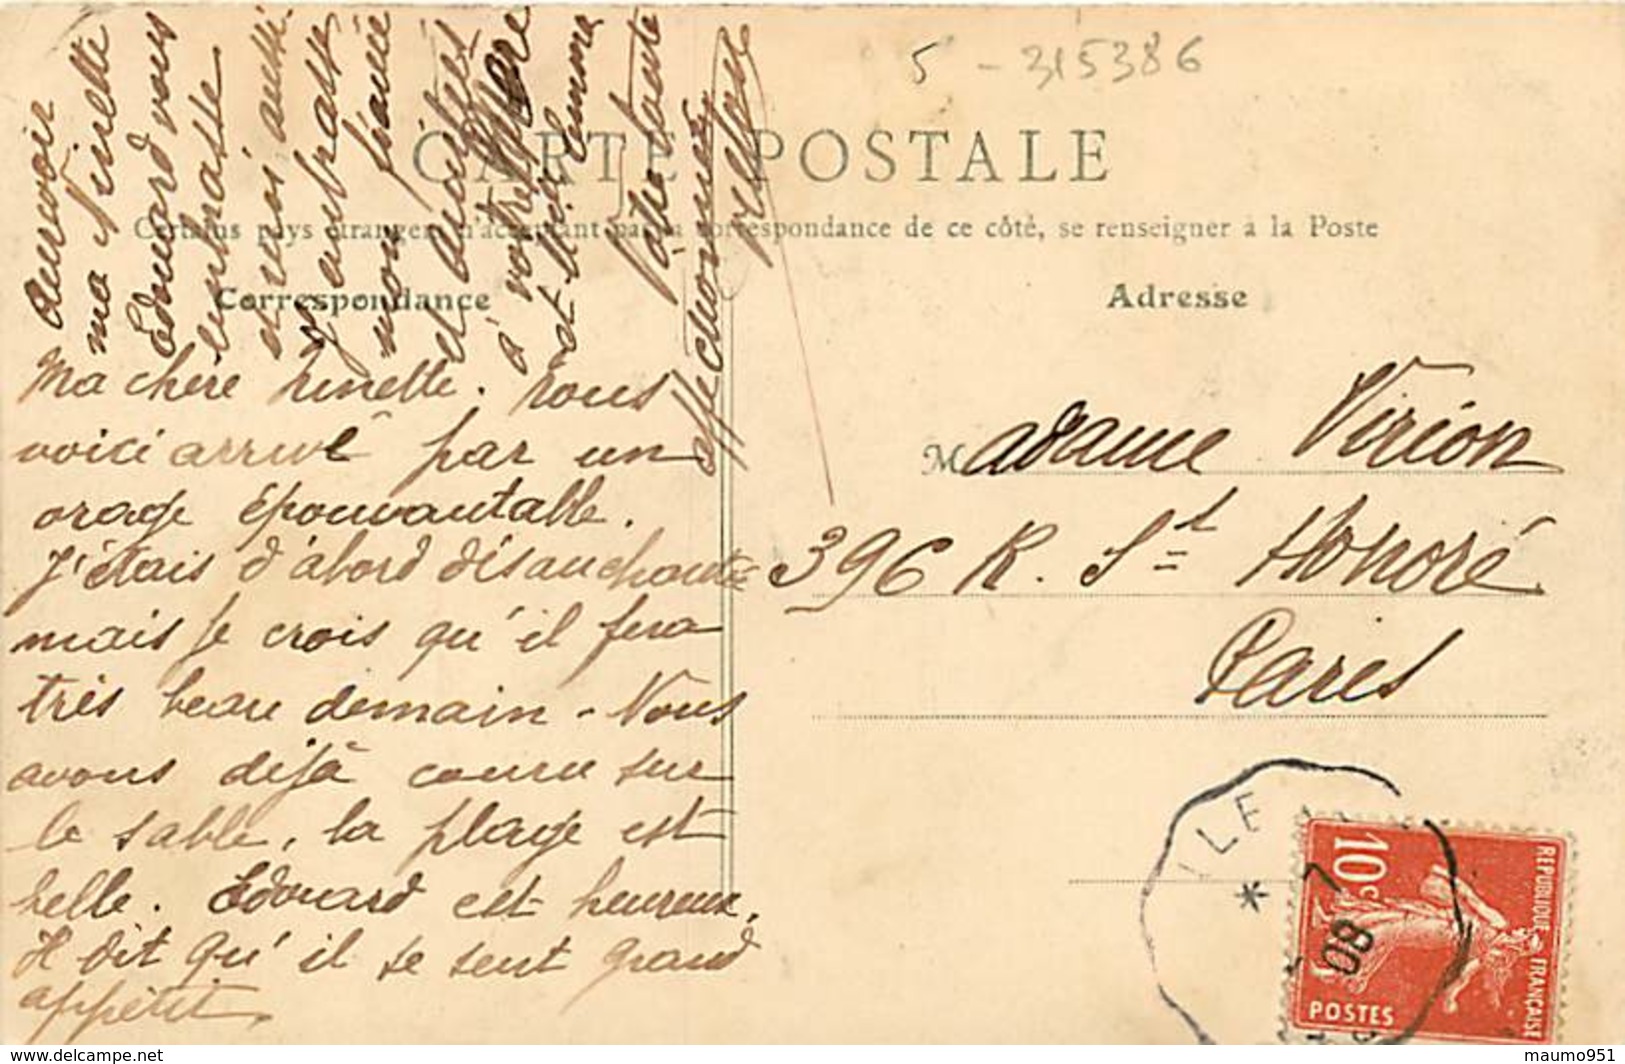 5 - 315386
CARTE POSTALE
Certains pays étrangers n'acceptant pas la correspondance de ce côté, se renseigner à la Poste
Correspondance
Adresse
Ma chère Ninette. nous
voici arrivé par un
orage épouvantable.
J'étais d'abord désanchantée
mais je crois qu'il fera
très beau demain - Nous
avons déjà couru sur
le sable, la plage est
belle. Edouard est heureux,
Il dit qu'il se sent grand
appétit.
Aurevoir
ma Ninette
Edouard vous
embrasse
et moi aussi
j'embrasse
mon
et
à votre
et
Votre toute
affectionnée
Madame Virion
396 R. St Honoré
Paris
ILE
* 7
08
10c
REPUBLIQUE FRANÇAISE
POSTES
www.delcampe.net
maumo951